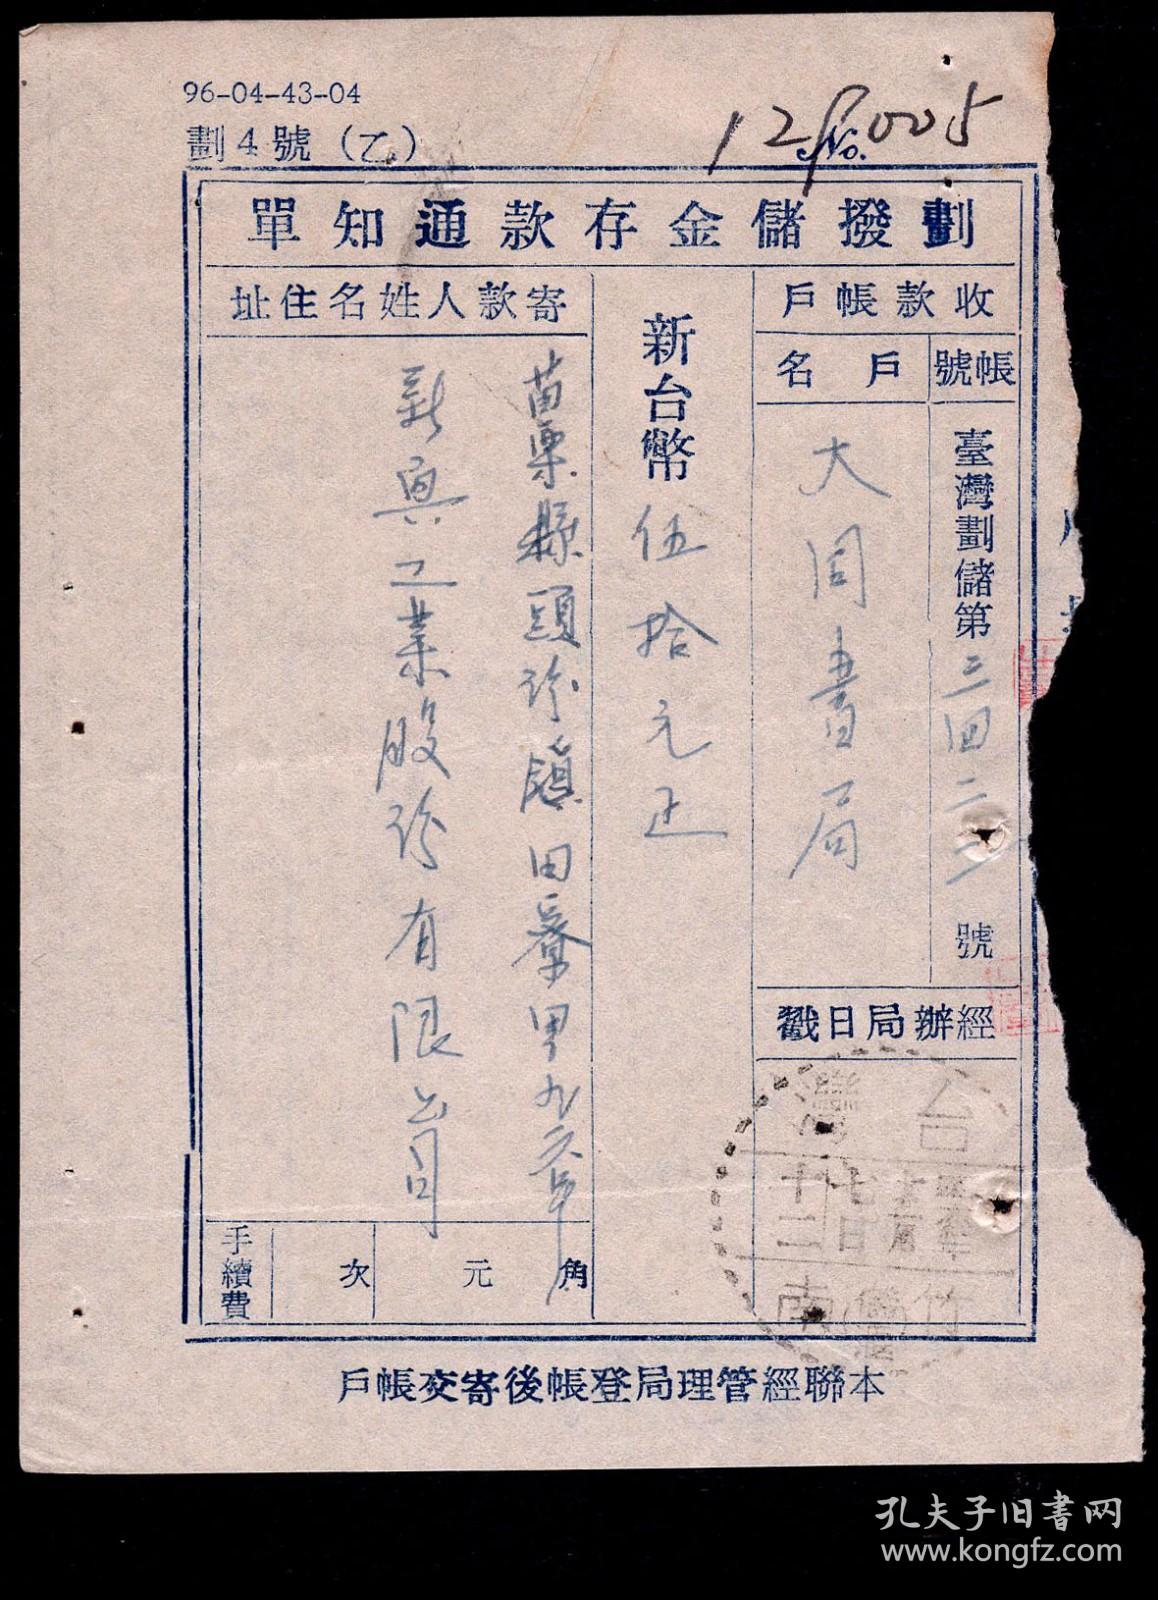 96-04-43-04
劃4號(乙)
No. 129005
劃撥儲金存款通知單
收款帳戶
帳號
戶名
臺灣劃儲第三四二二號
大同書局
新台幣伍拾元正
寄款人姓名住址
苗栗縣頭份鎮田寮里九
新興工業股份有限公司
經辦局日戳
台灣
十二
七日
竹南
手續費
次
元
角
本聯經管理局登帳後寄交帳戶
孔夫子旧书网
www.kongfz.com